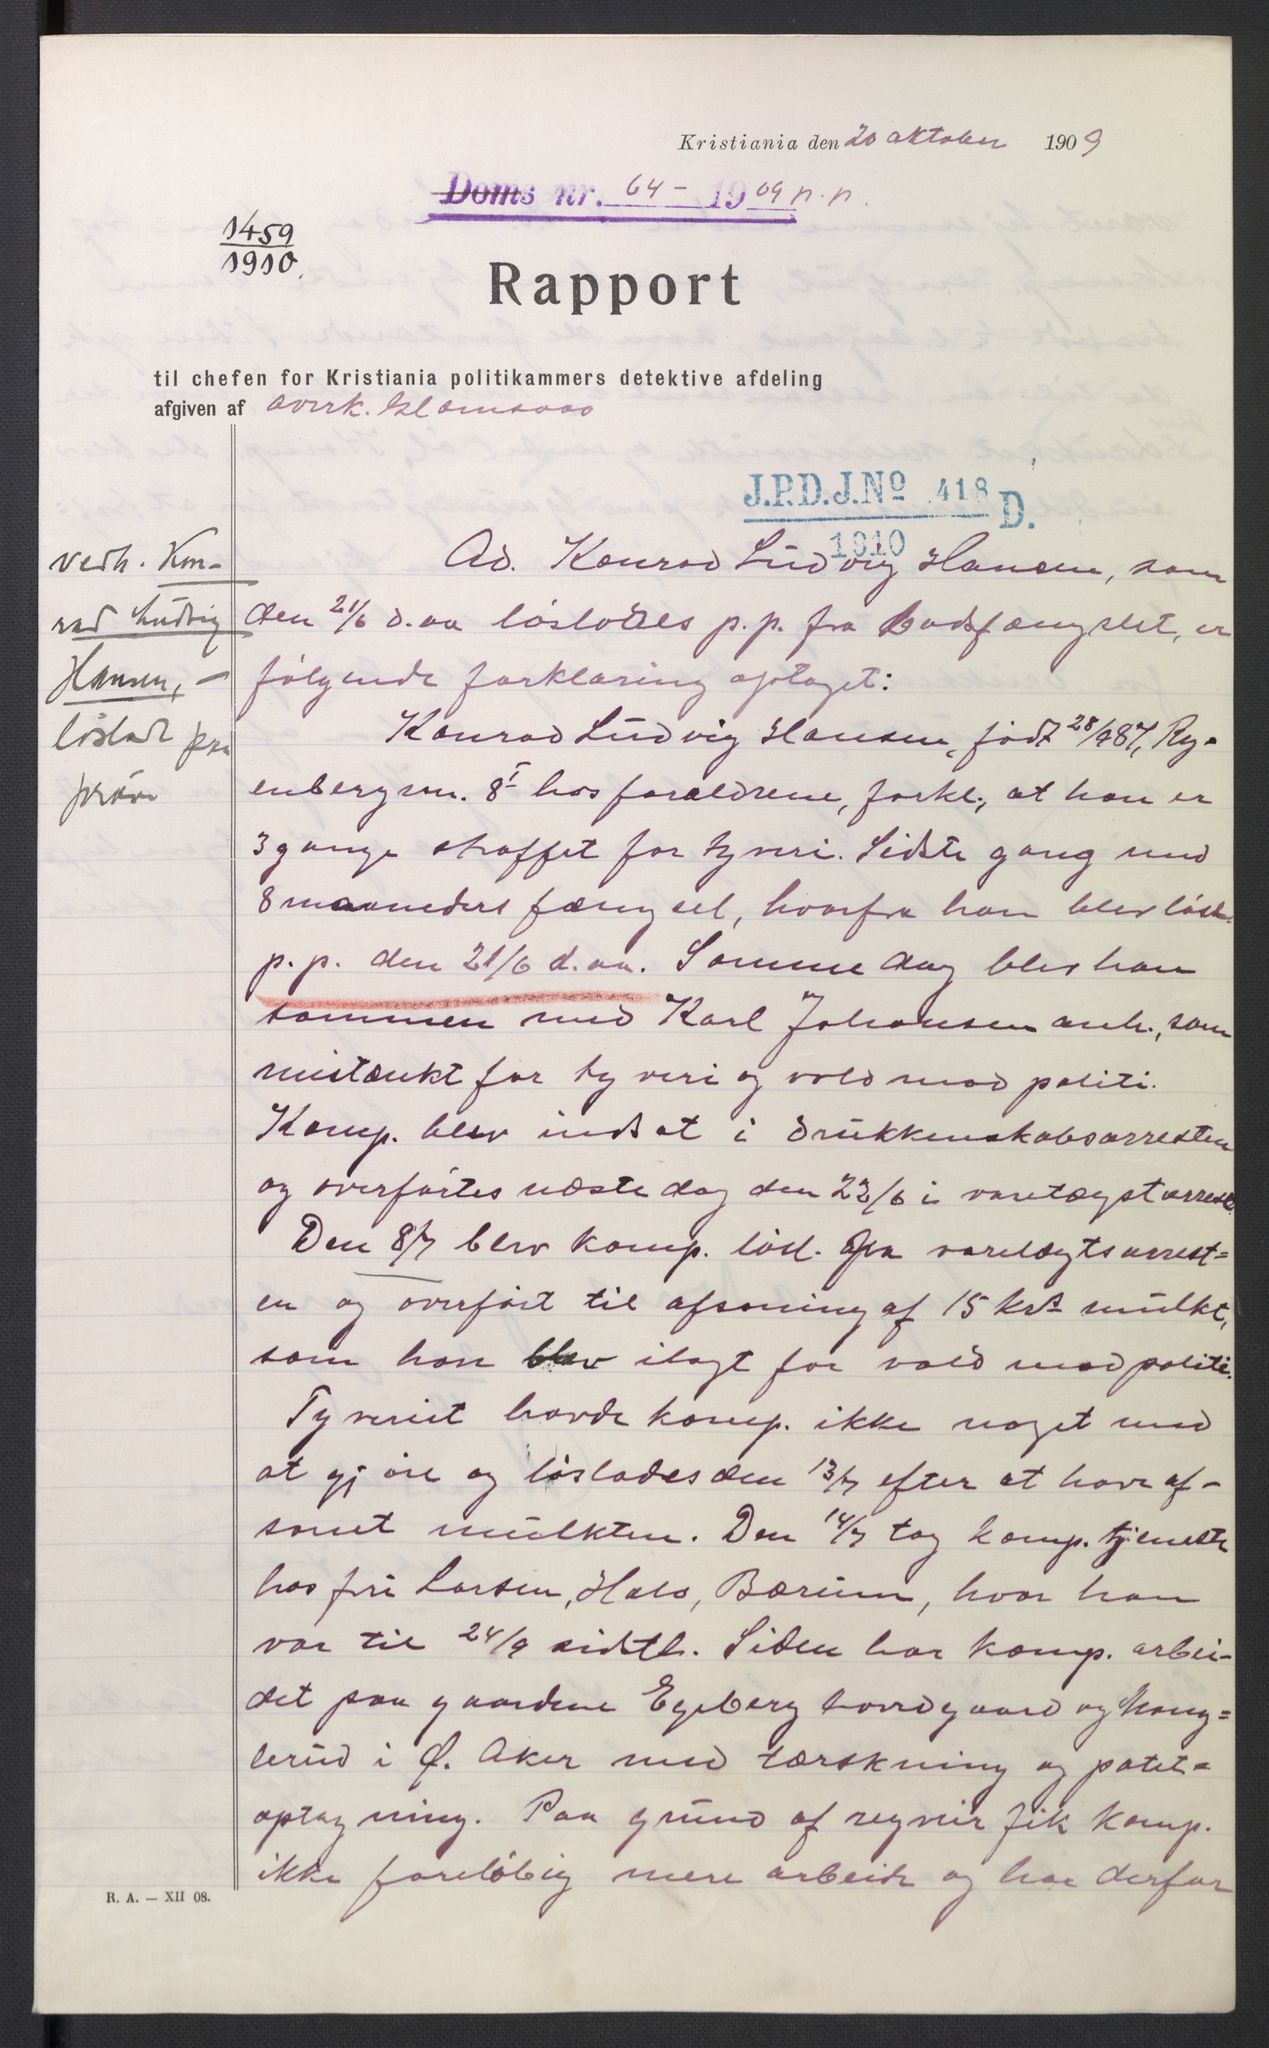 Kristiania den 20 oktober 1909
Doms nr. 64 - 1909 p.p.
1459
1910.
Rapport
til chefen for Kristiania politikammers detektive afdeling
afgiven af overk.
J.P.D.J.Nº 418 D.
1910
vedk. Kon-
rad Ludvig
Hansen, -
løsladt paa
prøve
Ad. Konrad Ludvig Hansen, som
den 21/6 d.aa løslodes p.p. fra Bodsfængslet, er
følgende forklaring optaget:
Konrad Ludvig Hansen, født 28/9 87, Ry-
enbergvn. 8 I hos forældrene, forkl., at han er
3 gange straffet for tyveri. Sidste gang med
8 maaneders fængsel, hvorfra han blev løsl.
p.p. den 21/6 d.aa. Samme dag blev han
sammen med Karl Johansen anh., som
mistænkt for tyveri og vold mod politi.
Komp. blev indsat i drukkenskabsarresten
og overførtes næste dag den 22/6 i varetægtsarrest.
Den 8/7 blev komp. løsl. fra varetægtsarrest=
en og overført til afsoning af 15 krs mulkt,
som han blev ilagt for vold mod politi.
Tyveriet havde komp. ikke noget med
at gjøre og løslades den 13/7 efter at have af-
sonet mulkten. Den 14/7 tog komp. tjeneste
hos fru Larsen, Hals, Bærum, hvor han
var til 24/9 sidstl. Siden har komp. arbei-
det paa gaardene Egeberg hovedgaard og Mang=
lerud i Ø. Aker med tærskning og potet=
optagning. Paa grund af regnveir fik komp.
ikke foreløbig mere arbeide og har derfor
R. A. — XII 08.